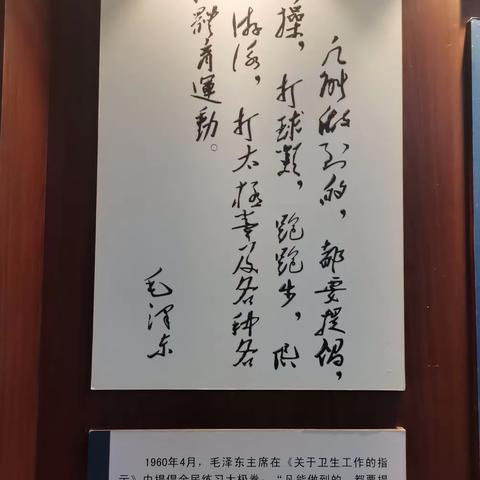 凡能做到的，都要提倡，
操，打球類，跑跑步，爬
游泳，打太極拳及各种各
體育運動。
毛泽东
1960年4月，毛泽东主席在《关于卫生工作的指
示》中提倡全民练习太极拳。“凡能做到的，都要提